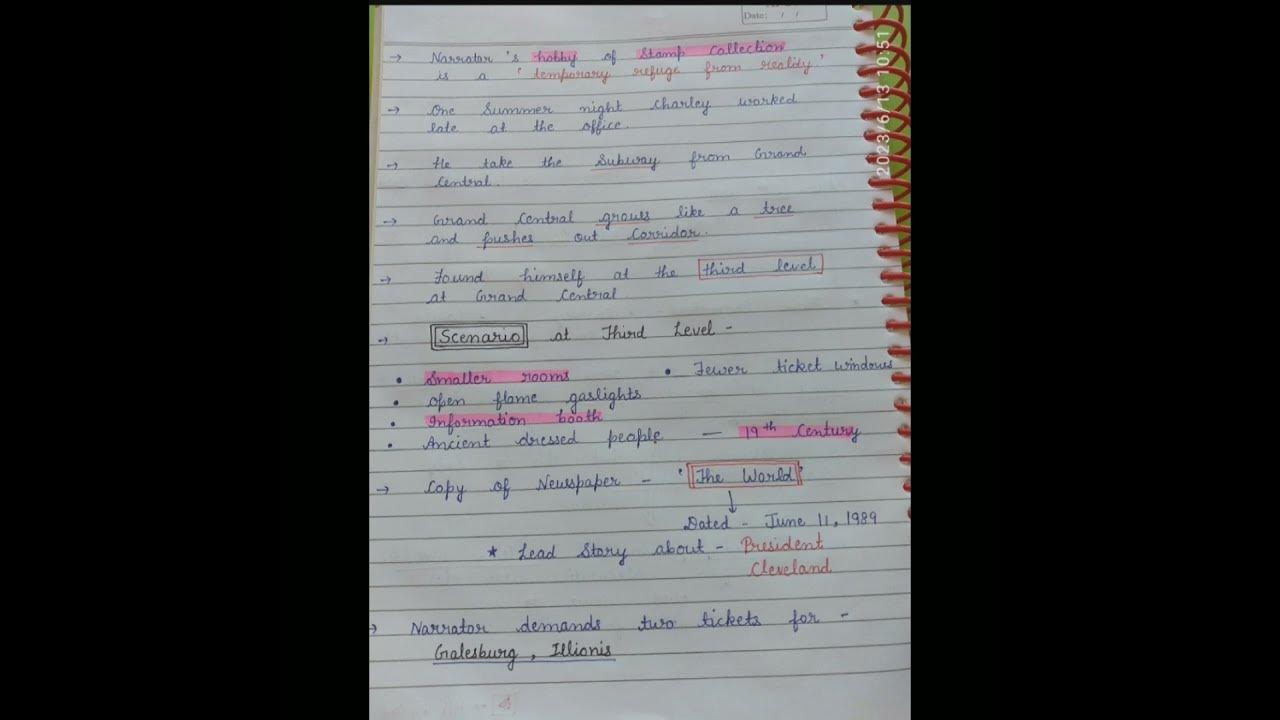 Date: / /
→ Narrator's hobby of Stamp Collection
is a 'temporary refuge from reality'
→ One Summer night Charley worked
late at the office.
→ He take the Subway from Grand
Central.
→ Grand Central grows like a tree
and pushes out Corridor.
→ Found himself at the third level
at Grand Central
→ Scenario at Third Level -
• Smaller rooms • Fewer ticket windows
• open flame gaslights
• Information booth
• Ancient dressed people — 19th Century
→ Copy of Newspaper - 'The World'
↓
Dated - June 11, 1989
* Lead Story about - President
Cleveland
→ Narrator demands two tickets for -
Galesburg, Illionis
2023/6/13 10:51